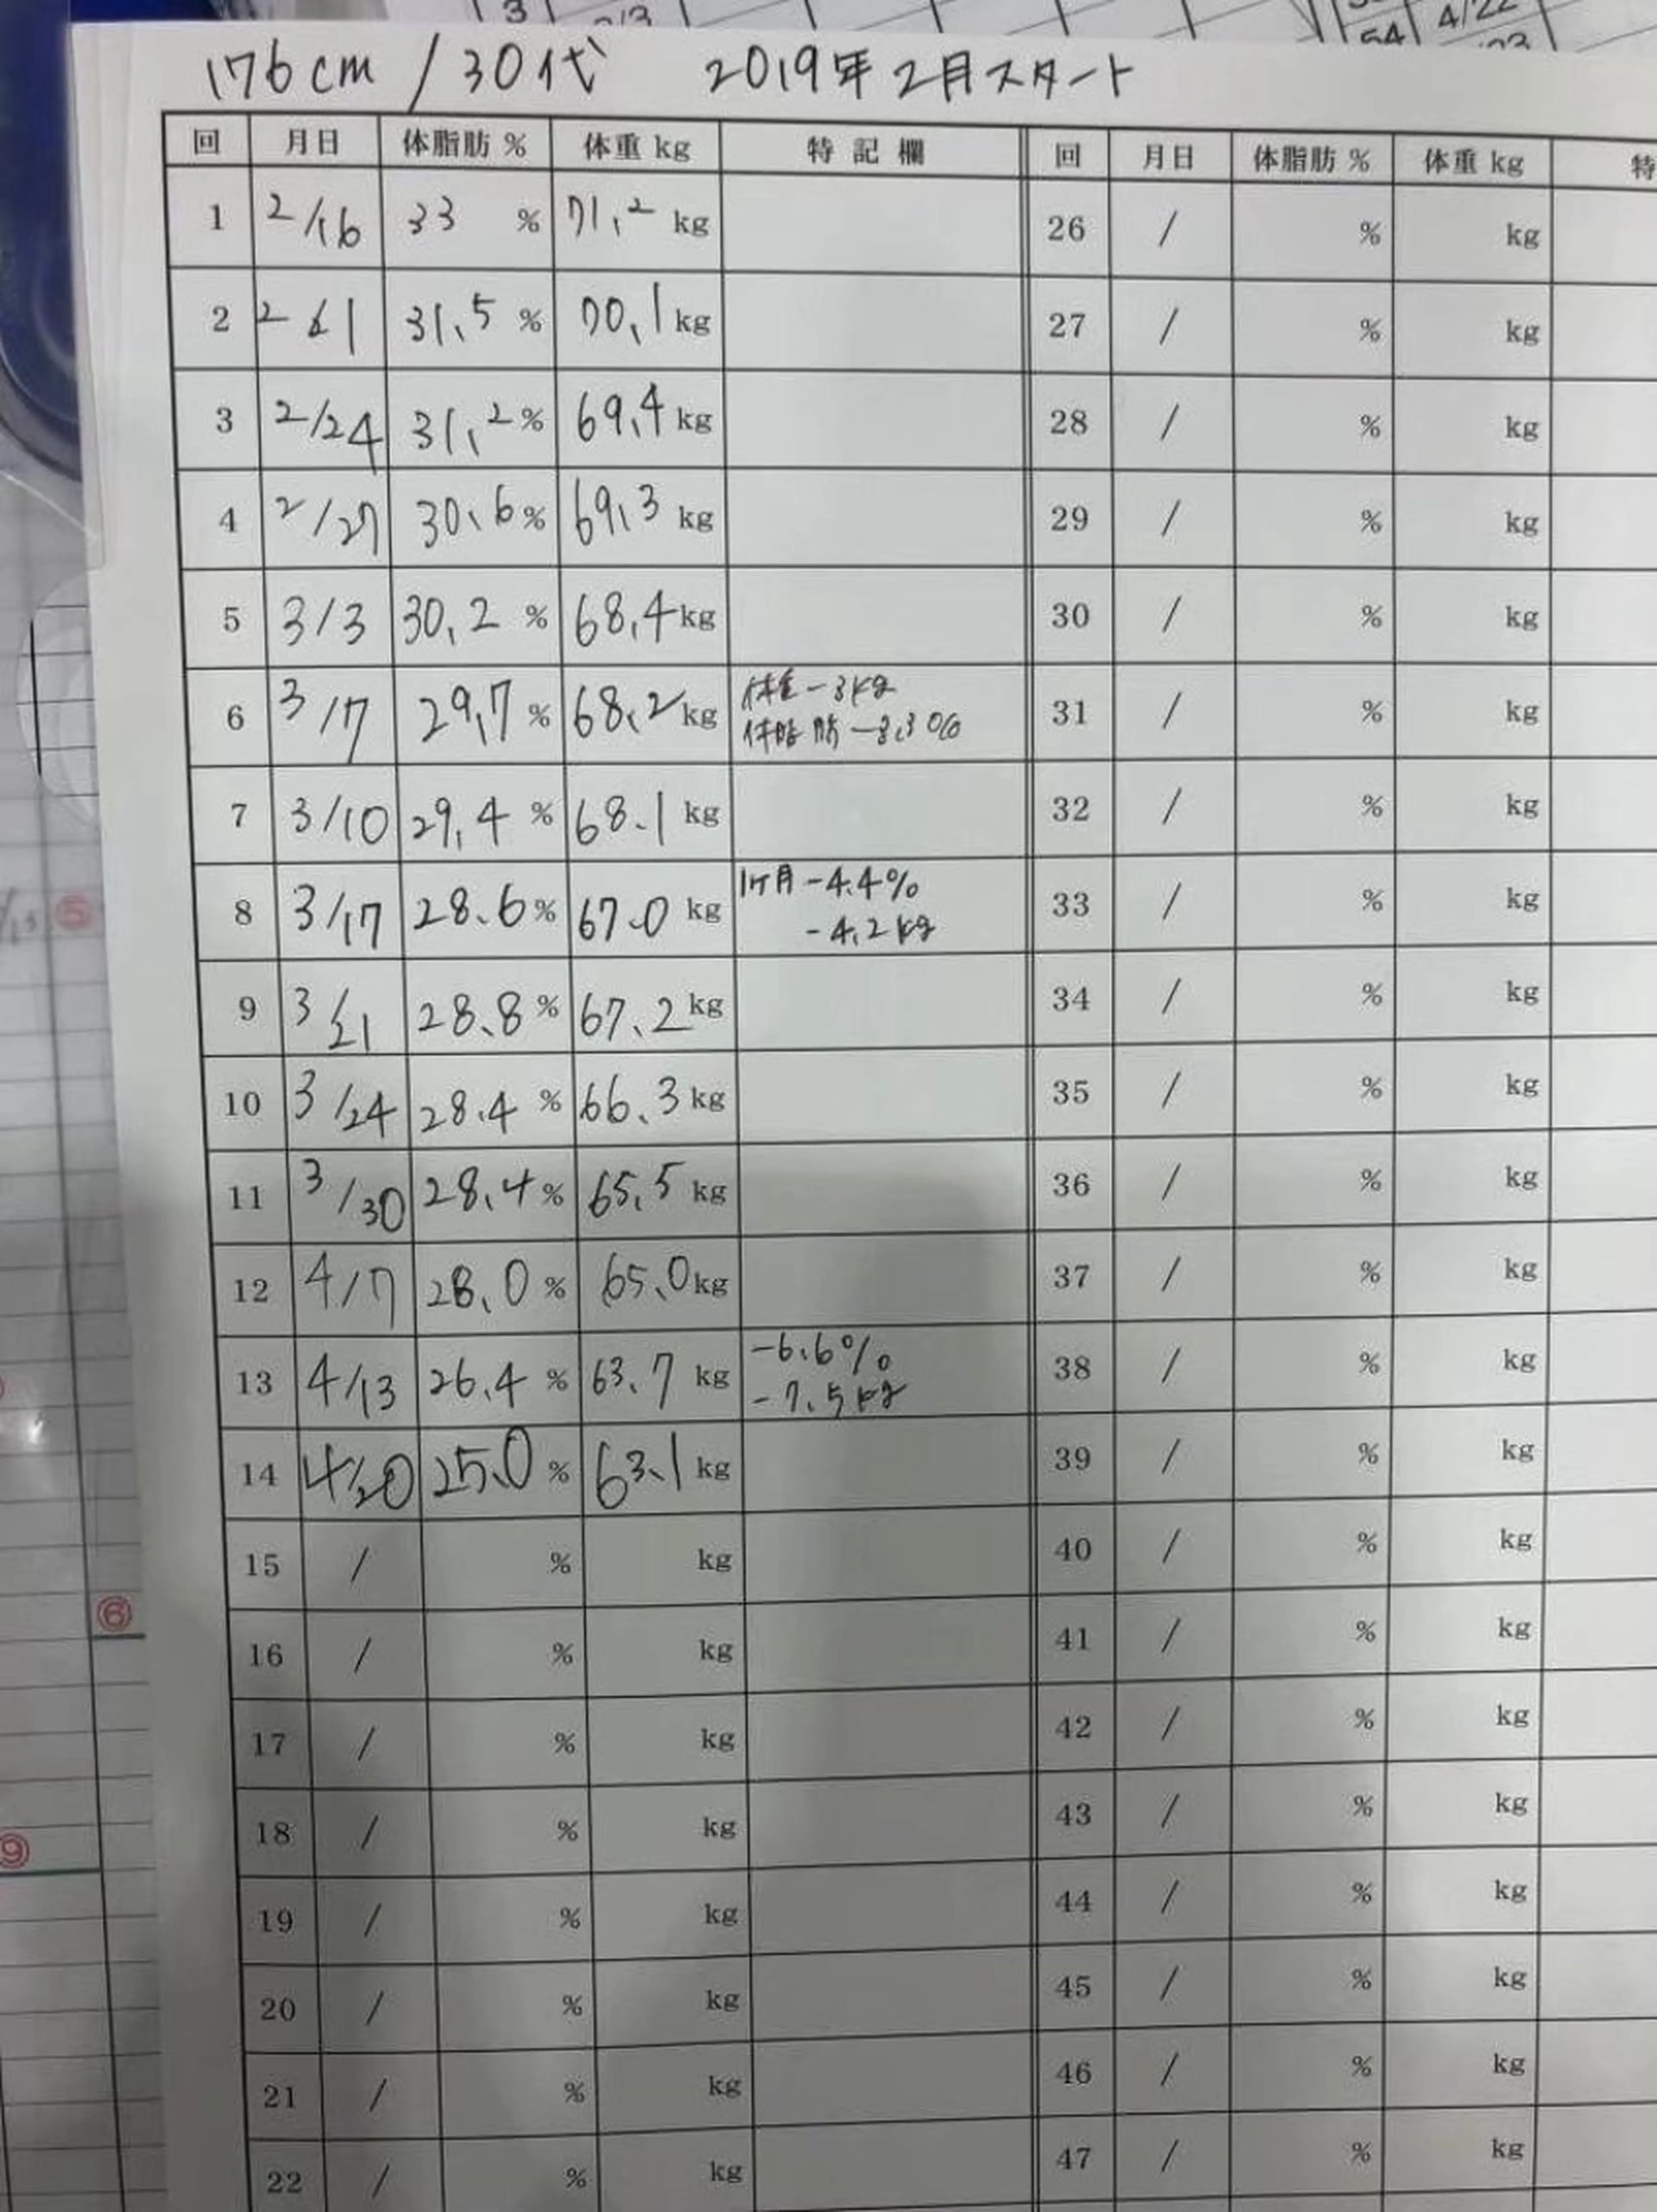 176cm / 30代 2019年2月スタート
回 月日 体脂肪 % 体重 kg 特記欄 回 月日 体脂肪 % 体重 kg 特
1 2/16 33 % 71.2 kg 26 / % kg
2 2/21 31.5 % 70.1 kg 27 / % kg
3 2/24 31.2 % 69.4 kg 28 / % kg
4 2/27 30.6 % 69.3 kg 29 / % kg
5 3/3 30.2 % 68.4 kg 30 / % kg
6 3/7 29.7 % 68.2 kg 体重 -3kg 31 / % kg
体脂肪 -3.3%
7 3/10 29.4 % 68.1 kg 32 / % kg
8 3/17 28.6 % 67.0 kg 1ヶ月 -4.4% 33 / % kg
-4.2kg
9 3/21 28.8 % 67.2 kg 34 / % kg
10 3/24 28.4 % 66.3 kg 35 / % kg
11 3/30 28.4 % 65.5 kg 36 / % kg
12 4/7 28.0 % 65.0 kg 37 / % kg
13 4/13 26.4 % 63.7 kg -6.6% 38 / % kg
-7.5kg
14 4/20 25.0 % 63.1 kg 39 / % kg
15 / % kg 40 / % kg
16 / % kg 41 / % kg
17 / % kg 42 / % kg
18 / % kg 43 / % kg
19 / % kg 44 / % kg
20 / % kg 45 / % kg
21 / % kg 46 / % kg
22 / % kg 47 / % kg
3
54 4/22
⑤
⑥
⑨